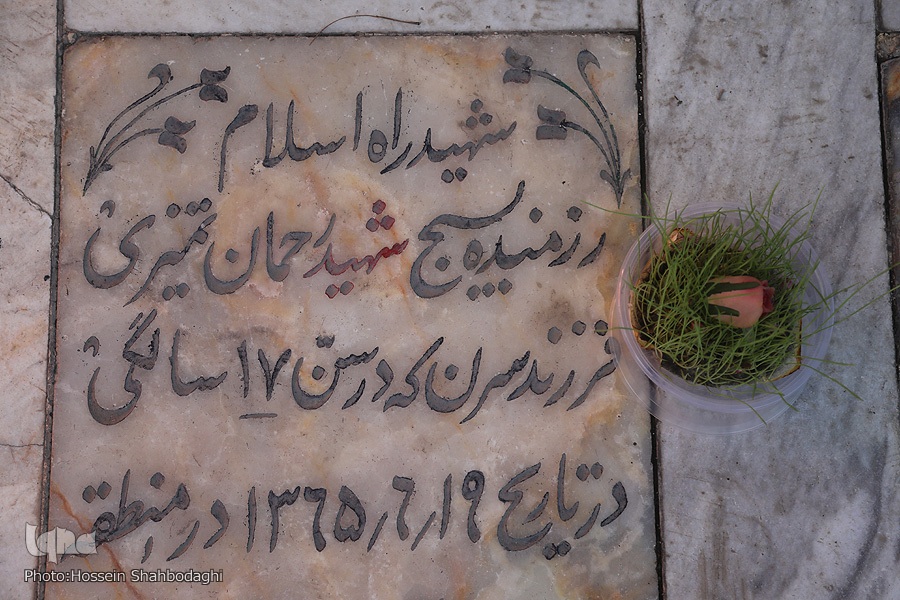 شهید راه اسلام
رزمنده بسیج شهید رحمان تمیزی
فرزند سرن که در سنّ ۱۷ سالگی
در تاریخ ۱۹ر۶ر۱۳۶۵ در منطقه
iqna
Photo:Hossein Shahbodaghi